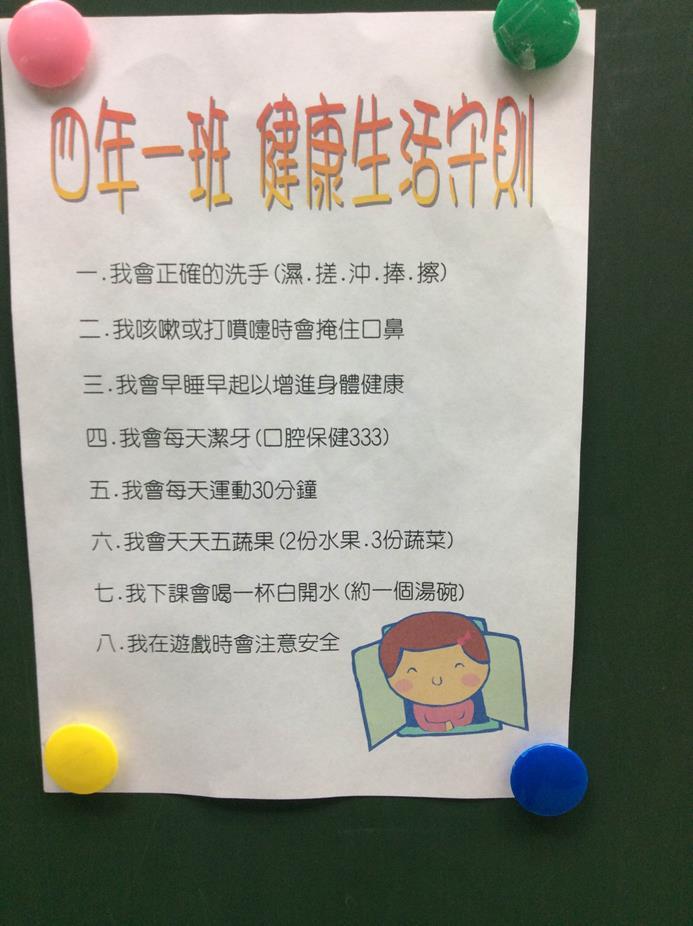 四年一班 健康生活守則
一.我會正確的洗手(濕.搓.沖.捧.擦)
二.我咳嗽或打噴嚏時會掩住口鼻
三.我會早睡早起以增進身體健康
四.我會每天潔牙(口腔保健333)
五.我會每天運動30分鐘
六.我會天天五蔬果(2份水果.3份蔬菜)
七.我下課會喝一杯白開水(約一個湯碗)
八.我在遊戲時會注意安全